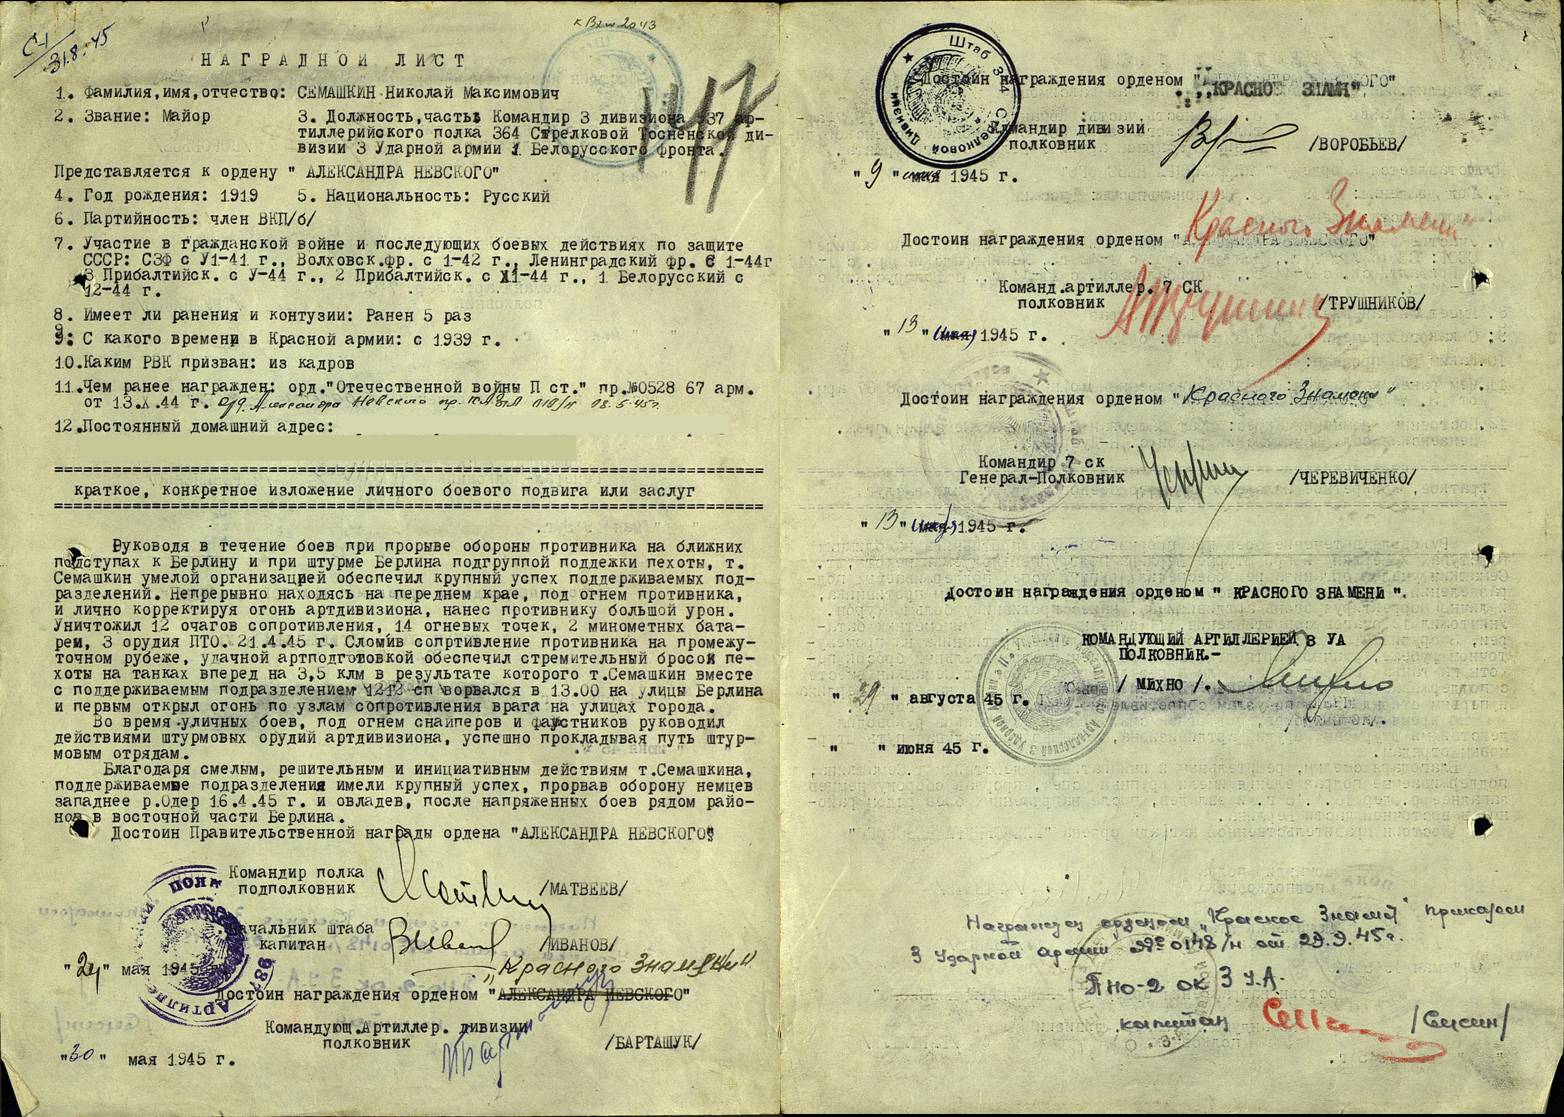 СЧ/31.8.45
к Вх № 2043
147
НАГРАДНОЙ ЛИСТ
1. Фамилия,имя,отчество: СЕМАШКИН Николай Максимович
2. Звание: Майор 3. Должность,часть: Командир 3 дивизиона 937 ар-
тиллерийского полка 364 Стрелковой Тосненской ди-
визии 3 Ударной армии 1 Белорусского фронта.
Представляется к ордену " АЛЕКСАНДРА НЕВСКОГО"
4. Год рождения: 1919 5. Национальность: Русский
6. Партийность: член ВКП/б/
7. Участие в гражданской войне и последующих боевых действиях по защите
СССР: СЗФ с У1-41 г., Волховск.фр. с 1-42 г., Ленинградский фр. С 1-44г
3 Прибалтийск. с У-44 г., 2 Прибалтийск. с X1-44 г., 1 Белорусский с
12-44 г.
8. Имеет ли ранения и контузии: Ранен 5 раз
9: С какого времени в Красной армии: с 1939 г.
10.Каким РВК призван: из кадров
11.Чем ранее награжден: орд."Отечественной войны П ст." пр.№0528 67 арм.
от 13.X.44 г. орд. Александра Невского пр.
12.Постоянный домашний адрес:
краткое, конкретное изложение личного боевого подвига или заслуг
Руководя в течение боев при прорыве обороны противника на ближних
подступах к Берлину и при штурме Берлина подгруппой поддежки пехоты, т.
Семашкин умелой организацией обеспечил крупный успех поддерживаемых под-
разделений. Непрерывно находясь на переднем крае, под огнем противника,
и лично корректируя огонь артдивизиона, нанес противнику большой урон.
Уничтожил 12 очагов сопротивления, 14 огневых точек, 2 минометных бата-
реи, 3 орудия ПТО. 21.4.45 г. Сломив сопртивление противника на промежу-
точном рубеже, удачной артподготовкой обеспечил стремительный бросок пе-
хоты на танках вперед на 3,5 клм в результате которого т.Семашкин вместе
с поддерживаемым подразделением 1212 сп ворвался в 13.00 на улицы Берлина
и первым открыл огонь по узлам сопротивления врага на улицах города.
Во время уличных боев, под огнем снайперов и фаустников руководил
действиями штурмовых орудий артдивизиона, успешно прокладывая путь штур-
мовым отрядам.
Благодаря смелым, решительным и инициативным действиям т.Семашкина,
поддерживаемые подразделения имели крупный успех, прорвав оборону немцев
западнее р.Одер 16.4.45 г. и овладев, после напряженных боев рядом райо-
нов в восточной части Берлина.
Достоин Правительственной награды ордена "АЛЕКСАНДРА НЕВСКОГО"
Командир полка
подполковник /МАТВЕЕВ/
Начальник штаба
капитан /ИВАНОВ/
"24" мая 1945 г.
"Красного Знамени"
Достоин награждения орденом "АЛЕКСАНДРА НЕВСКОГО"
Командующ.Артиллер. дивизии
полковник /БАРТАШУК/
"30" мая 1945 г.
Штаб 364 Стрелковой Дивизии
Достоин награждения орденом "
"КРАСНОЕ ЗНАМЯ"
Командир дивизии
полковник /ВОРОБЬЕВ/
"9" июня 1945 г.
Красного Знамени"
Достоин награждения орденом "АЛЕКСАНДРА НЕВСКОГО"
Команд.артиллер. 7 СК
полковник /ТРУШНИКОВ/
"13" июня 1945 г.
Достоин награждения орденом "Красного Знамени"
Командир 7 ск
Генерал-Полковник /ЧЕРЕВИЧЕНКО/
"13" июня 1945 г.
Достоин награждения орденом " КРАСНОГО ЗНАМЕНИ ".
КОМАНДУЮЩИЙ АРТИЛЛЕРИЕЙ 3 УА
ПОЛКОВНИК.-
/ МИХНО /.
"29" августа 45 г.
" " июня 45 г.
Награжден орденом "Красное Знамя" приказом
3 Ударной армии № 0148/н от 29.9.45г.
ПНО-2 ОК 3 У.А.
капитан /Сысин/